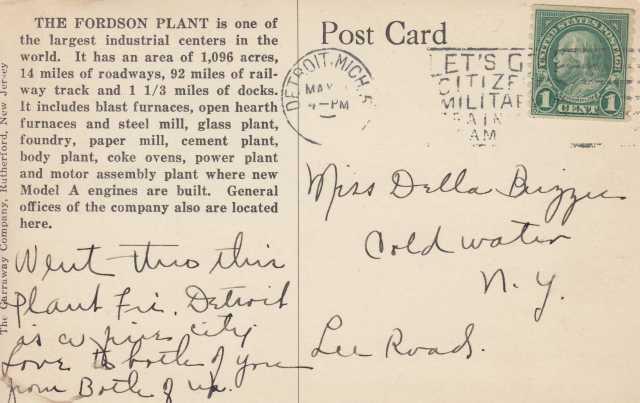 THE FORDSON PLANT is one of
the largest industrial centers in the
world. It has an area of 1,096 acres,
14 miles of roadways, 92 miles of rail-
way track and 1 1/3 miles of docks.
It includes blast furnaces, open hearth
furnaces and steel mill, glass plant,
foundry, paper mill, cement plant,
body plant, coke ovens, power plant
and motor assembly plant where new
Model A engines are built. General
offices of the company also are located
here.
Went thro this
plant Fri. Detroit
is a fine city
Love to both of you
from Both of us.
The Garraway Company, Rutherford, New Jersey
Post Card
DETROIT, MICH.
MAY
4-PM
LET'S G
CITIZE
MILITAR
RAIN
AM
UNITED STATES POSTAGE
1 CENT 1
Miss Della
Coldwater
N. Y.
Lee Road.